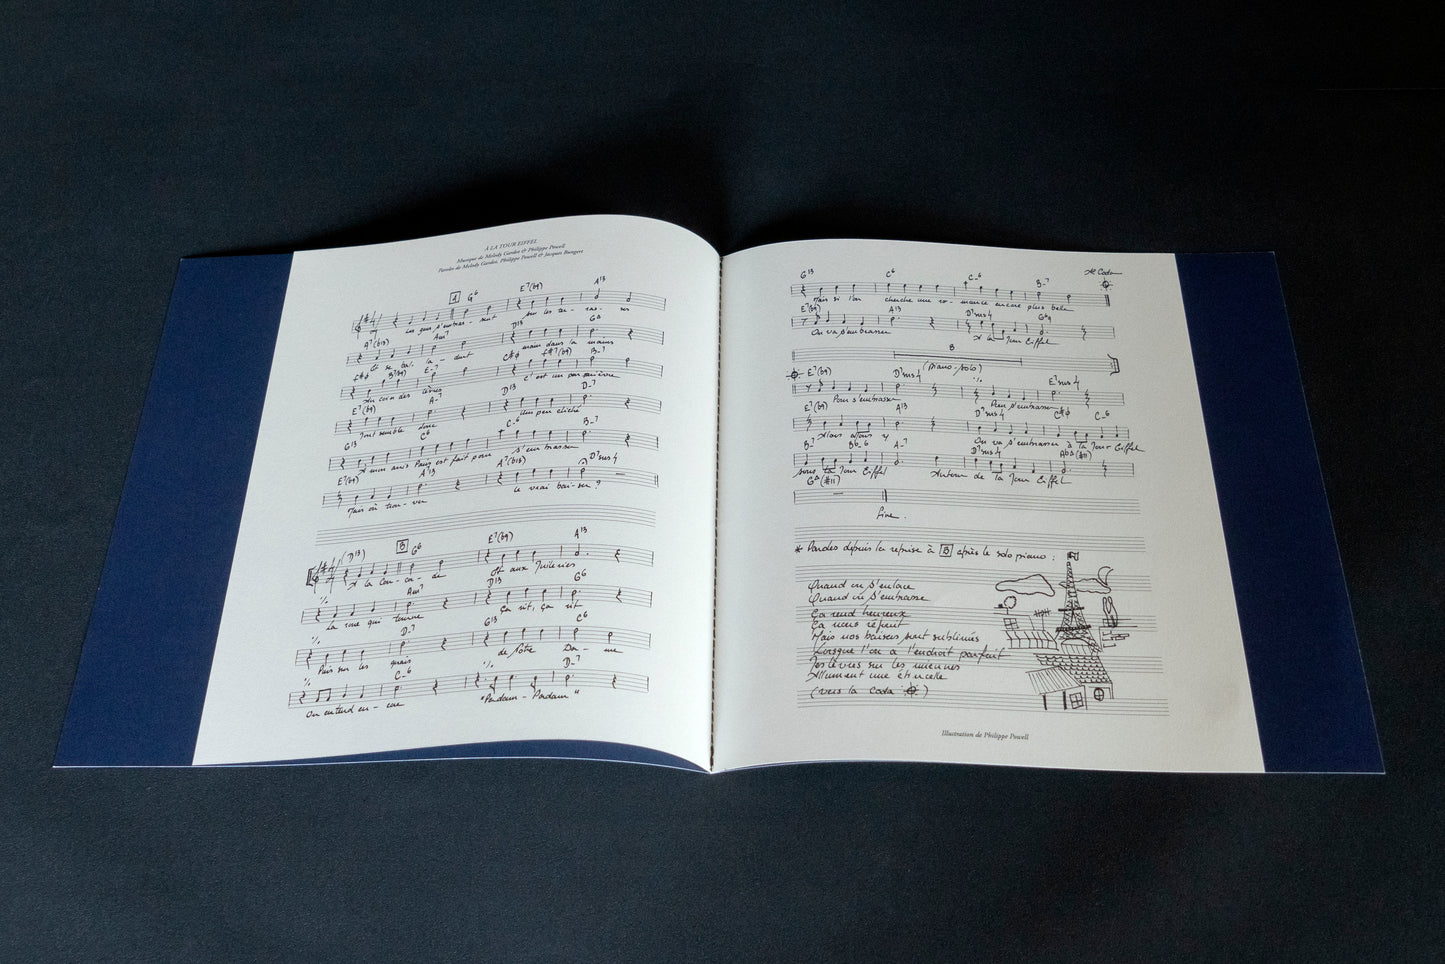 À LA TOUR EIFFEL
Musique de Melody Gardot & Philippe Powell
Paroles de Melody Gardot, Philippe Powell & Jacques Bungert
A G6 E7(b9) A13
Les gens s'embras-sent sur les ter-ras-ses
A7(b13) Am7 D13 G∆
Et se bai-la-dent main dans la mains
C#ø F#7(b9) B-7
B7(b9) E-7
Au coin des c'est un parisième
E7(b9) A-7 D13 D-7
Tout semble donc Un peu cliché
G13 C6 C-6 B-7
A mon avis Paris est fait pour s'embrasser
E7(b9) A13 A7(b13) D7sus4
Mais où trou-ver Le vrai bai-ser ?
(D13) B G6 E7(b9) A13
A la Con-cor-de Et aux Tuileries
Am7 D13 G6
La roue qui tourne Ça rit, ça vit
D-7 G13 C6
Puis sur les quais de Notre Da-me
C-6 D-7
On entend en-core "Padam-Padam"
G13 C6 C-6 B-7 al Coda
Mais si l'on cherche une ro-mance encore plus belle
E7(b9) A13 D7sus4 G6/9
On va s'embrasser A la Tour Eiffel
8
(Piano-solo)
E7(b9) D7sus4 E7sus4
Pour s'embrasser Pour s'embrasser
E7(b9) A13 D7sus4 C#ø C-6
Alors allons-y On va s'embrasser à la Tour Eiffel
B-7 Bb-6 A-7 D7sus4 Ab∆(#11)
Sous la Tour Eiffel Autour de la Tour Eiffel
G∆(#11)
Fine.
* Paroles depuis la reprise à B après le solo piano :
Quand on s'enlace
Quand on s'embrasse
Ça rend heureux
Ça nous réjouit
Mais nos baisers sont sublimés
Lorsque l'on a l'endroit parfait
Tes lèvres sur les miennes
Allument une étincelle
(vers la coda )
Illustration de Philippe Powell